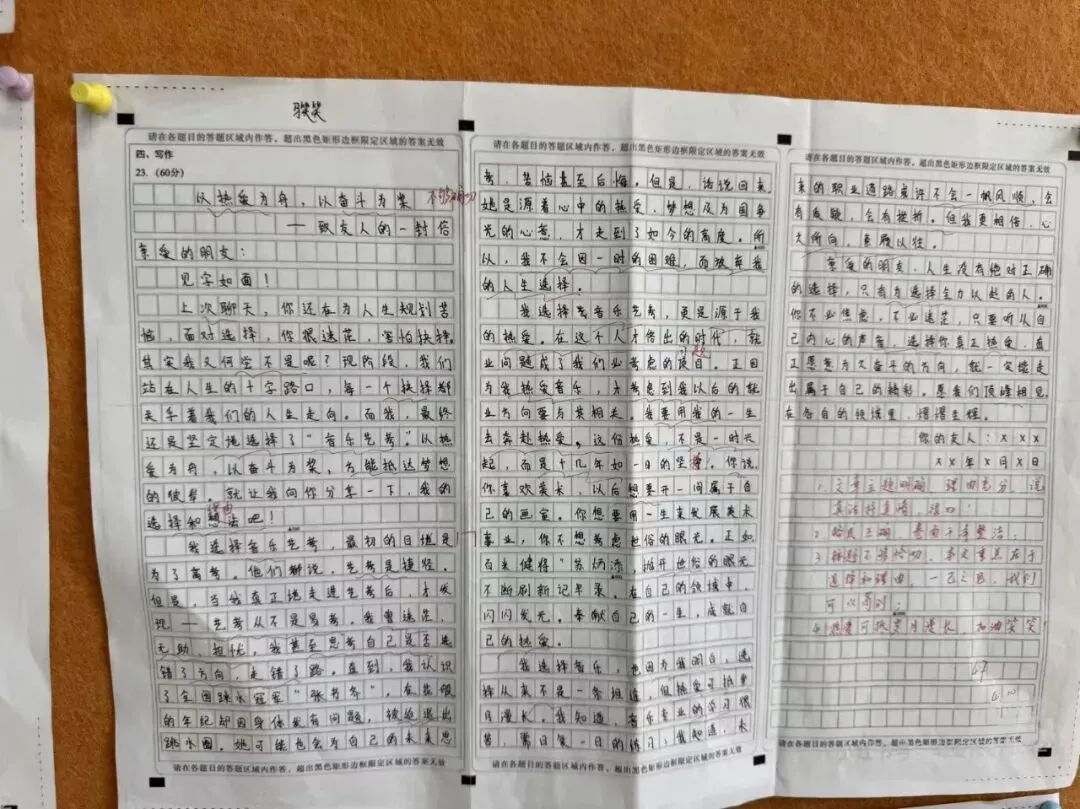 骙笑
请在各题目的答题区域内作答，超出黑色矩形边框限定区域的答案无效
四、写作
23.（60分）
以热爱为舟，以奋斗为桨
——致友人的一封信
亲爱的朋友：
见字如面！
上次聊天，你还在为人生规划苦
恼，面对选择，你很迷茫，害怕抉择。
其实我又何尝不是呢？现阶段，我们
站在人生的十字路口，每一个抉择都
关乎着我们的人生走向。而我，最终
还是坚定地选择了“音乐艺考”。以热
爱为舟，以奋斗为桨，方能抵达梦想
的彼岸。就让我向你分享一下，我的
选择和想法吧！
理由
我选择音乐艺考，最初的目的是
为了高考。他们都说，艺考是捷径。
但是，当我真正地走进艺考才后，发
现——艺考从不是易考。我曾迷茫、
无助、担忧。我甚至思考自己是否选
错了方向，走错了路。直到，我认识
了全国跳水冠军“张
的年纪却因身体发育问题，被迫退出
跳水圈。她可能也会为自己的未来思
请在各题目的答题区域内作答，超出黑色矩形边框限定区域的答案无效
请在各题目的答题区域内作答，超出黑色矩形边框限定区域的答案无效
考，苦恼甚至后悔。但是，话说回来
她是源着心中的热爱，梦想及为国争
光的心意，才走到了如今的高度。所
以，我不会因一时的困难，而放弃我
的人生选择。
我选择考音乐艺考，更是源于我
的热爱。在这个人才倍出的时代，就
业问题成了我们必考虑的项目。正因
为我热爱音乐，才考虑到我以后的就
业方向要与其相关。我要用我的一生
去奔赴热爱。这份热爱，不是一时兴
起，而是十几年如一日的坚持。你说，
你喜欢美术，以后想要开一间属于自
己的画室。你想要用一生来发展美术
事业，你不想考虑世俗的眼光。正如
百米健将“苏炳添，抛开世俗的眼光
不断刷新记录。在自己的领域里，
闪闪发光。奉献自己的一生，成就自
己的热爱。
我选择音乐，也因为我明白，选
择从来不是一条坦途，但热爱可抵岁
月漫长。我知道，音乐专业的学习很
苦，需日复一日的练习；我知道，未
请在各题目的答题区域内作答，超出黑色矩形边框限定区域的答案无效
请在各题目的答题区域内作答，超出黑色矩形边框限定区域的答案无效
来的职业道路或许不会一帆风顺，会
有质疑，会有挫折。但我更相信，心
之所向，素履以往。
亲爱的朋友，人生没有绝对正确
的选择，只有为选择全力以赴的人。
你不必焦虑，不必迷茫，只要听从自
己内心的声音，选择你真正热爱，真
正愿意为之奋斗的方向，就一定能走
出属于自己的精彩。愿我们顶峰相见，
在各自的领域里，熠熠生辉。
你的友人：×××
××年×月×日
1. 文章主题明确，理由充分，说
2.
3. 标题不够恰切，本文重点在于
选择和理由。
4. 热爱可抵岁月漫长，加油笑笑！
47
请在各题目的答题区域内作答，超出黑色矩形边框限定区域的答案无效